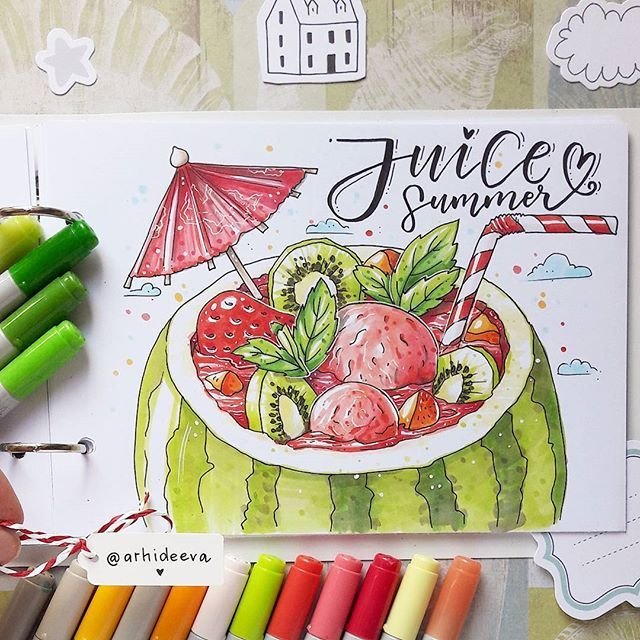 Juice
Summer
@arhideeva